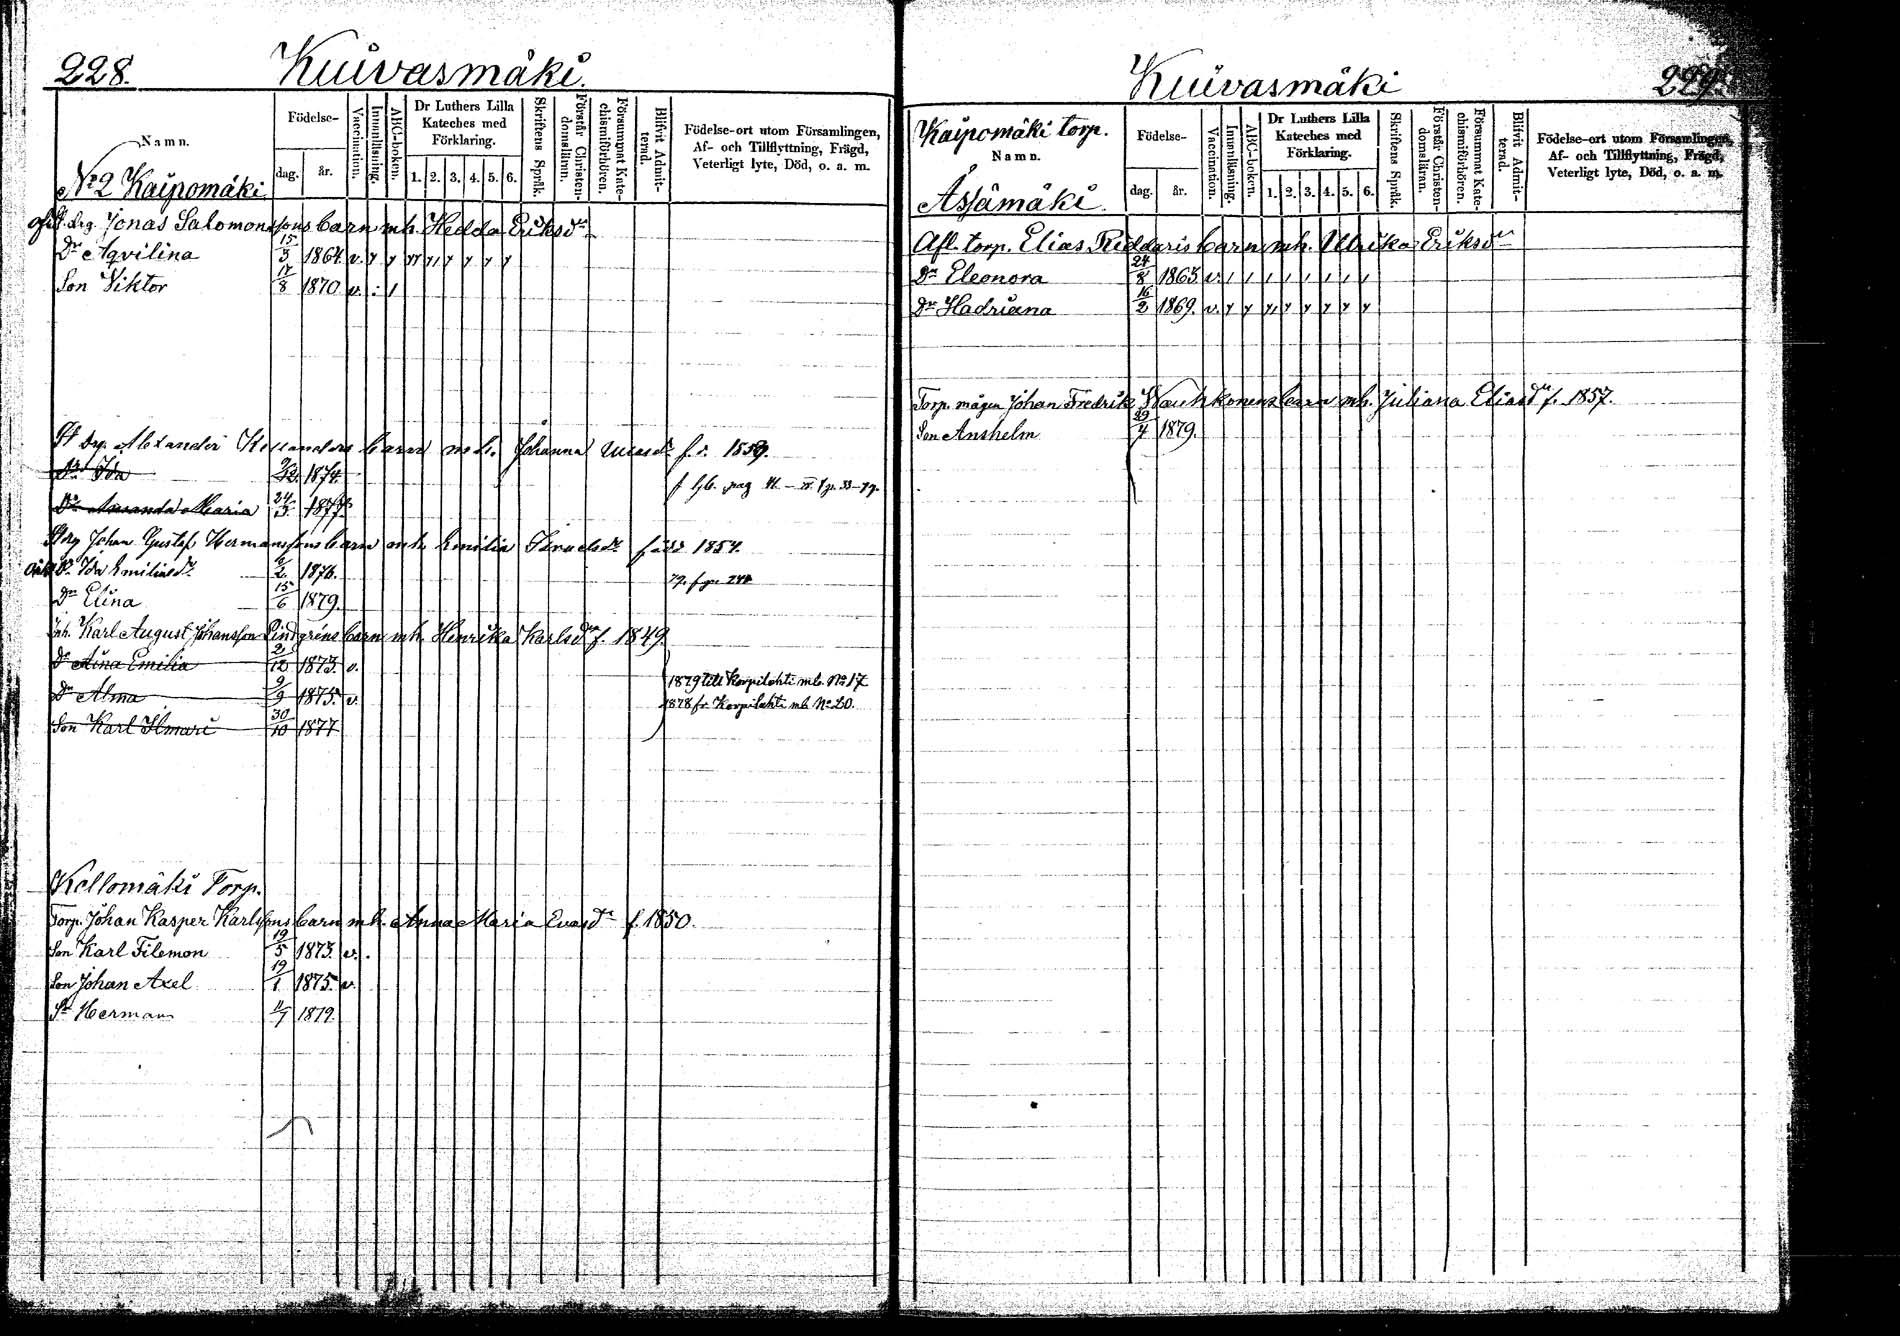 228.
Kuivasmäki.
Namn.
Födelse-
dag.
år.
Vaccination.
Innanläsning.
ABC-boken.
Dr Luthers Lilla
Kateches med
Förklaring.
1. 2. 3. 4. 5. 6.
Skriftens Språk.
Förstår Christen-
domsläran.
Försummat Kate-
chismiförhören.
Blifvit Admit-
terad.
Födelse-ort utom Församlingen,
Af- och Tillflyttning, Frägd,
Veterligt lyte, Död, o. a. m.
No 2 Kaipomäki
drg. Jonas Salomonssons barn mh. Hedda Eriksdr
Dr Aqvilina 15/3 1864. v.
Son Viktor 17/8 1870 v.
drg. Alexander barn mh. Johanna f. 1859.
Dr Ida 9/12 1874.
pag
Dr Amanda Maria 24/3 1877.
drg Johan Gustaf Hermanssons barn mh. Emilia född 1854.
Dr Ida Emiliasdr 6/2 1876.
Dr Elina 15/6 1879.
Inh. Karl August Johansson Lindgréns barn mh. Henrika Karlsdr f. 1849.
Dr Aina Emilia 2/12 1873. v.
1879 till Korpilahti mb. No 17
Dr Alma 9/9 1875. v.
1878 fr. Korpilahti mb No 20.
Son Karl Ilmari 30/10 1877
Kellomäki Torp.
Torp. Johan Kasper Karlssons barn mh. Anna Maria Evasdr f. 1850.
Son Karl Filemon 19/5 1873. v.
Son Johan Axel 19/1 1875. v.
Sn Herman 11/7 1879.
Kuivasmäki
229.
Kaipomäki torp.
Namn.
Ässämäki.
Födelse-
dag.
år.
Vaccination.
Innanläsning.
ABC-boken.
Dr Luthers Lilla
Kateches med
Förklaring.
1. 2. 3. 4. 5. 6.
Skriftens Språk.
Förstår Christen-
domsläran.
Försummat Kate-
chismiförhören.
Blifvit Admit-
terad.
Födelse-ort utom Församlingen,
Af- och Tillflyttning, Frägd,
Veterligt lyte, Död, o. a. m.
Afl. torp. Elias Riddaris barn mh. Ulrika Eriksdr
Dr Eleonora 24/8 1863 v.
Dr Hadriana 16/2 1869. v.
Torp. mågen Johan Fredrik Wauhkonens barn mh. Juliana Eliasdr f. 1857.
Son Anshelm 29/4 1879.